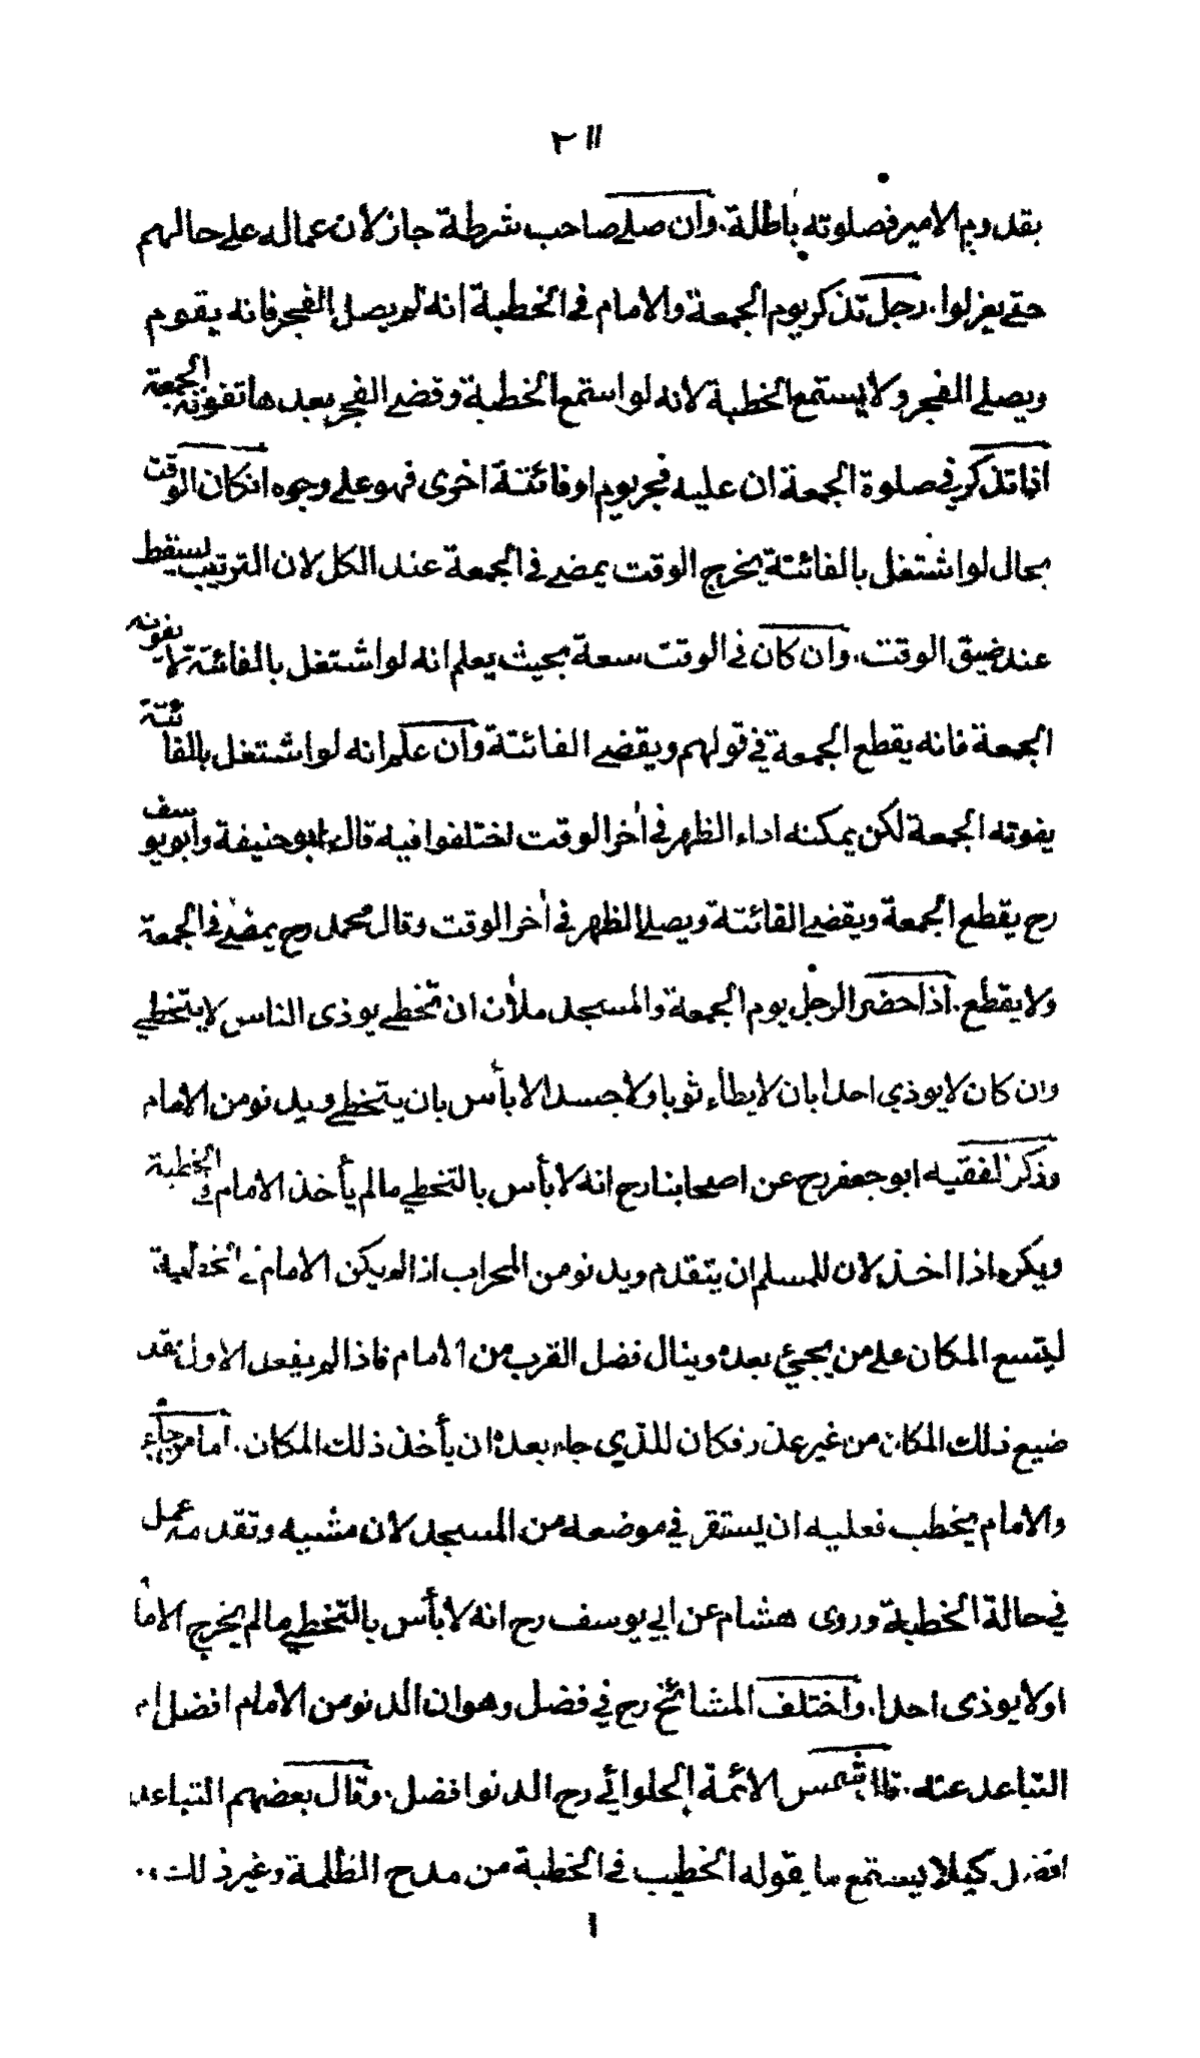 ٢١١
بقدوم الامير فصلوته باطلة. وان صلے صاحب شرطة جاز لان عماله علے حالهم
حتے يعزلوا. رجل تذكر يوم الجمعة والامام فى الخطبة انه لم يصل الفجر فانه يقوم
ويصلے الفجر ولا يستمع الخطبة لانه لو استمع الخطبة وقضے الفجر بعدها تفوته الجمعة
اذا تذكر في صلوة الجمعة ان عليه فجر يوم او فائتة اخرى فهو علے وجوه ان كان الوقت
بحال لو اشتغل بالفائتة يخرج الوقت يمضے فى الجمعة عند الكل لان الترتيب يسقط
عند ضيق الوقت. وان كان فى الوقت سعة بحيث يعلم انه لو اشتغل بالفائتة لا يفوته
الجمعة فانه يقطع الجمعة في قولهم ويقضے الفائتة وان علم انه لو اشتغل بالفائتة
يفوته الجمعة لكن يمكنه اداء الظهر فى اٰخر الوقت اختلفوا فيه قال ابو حنيفة وابو يوسف
رح يقطع الجمعة ويقضے الفائتة ويصلے الظهر فى اٰخر الوقت وقال محمد رح يمضے فى الجمعة
ولا يقطع. اذا حضر الرجل يوم الجمعة والمسجد ملأن ان تخطے يوذى الناس لا يتخطے
وان كان لا يوذي احدا بان لا يطاء ثوبا ولا جسدا لا بأس بان يتخطے ويدنو من الامام
وذكر الفقيه ابو جعفر رح عن اصحابنا رح انه لا بأس بالتخطي ما لم يأخذ الامام فى الخطبة
ويكره اذا اخذ لان للمسلم ان يتقدم ويدنو من المحراب اذا لم يكن الامام فى الخطبة
ليتسع المكان علے من يجيئ بعده وينال فضل القرب من الامام فاذا لم يفعل الاول فقد
ضيع ذلك المكان من غير عذر فكان للذي جاء بعده ان يأخذ ذلك المكان. اما من جاء
والامام يخطب فعليه ان يستقر في موضعه من المسجد لان مشيه وتقدمه عمل
في حالة الخطبة وروى هشام عن ابي يوسف رح انه لا بأس بالتخطي ما لم يخرج الامام
او لا يوذى احدا. واختلف المشائخ رح في فضل وهو ان الدنو من الامام افضل ام
التباعد عنه. قال شمس الائمة الحلوائي رح الدنو افضل. وقال بعضهم التباعد
افضل كيلا يستمع ما يقوله الخطيب فى الخطبة من مدح الظلمة وغير ذلك..
ا